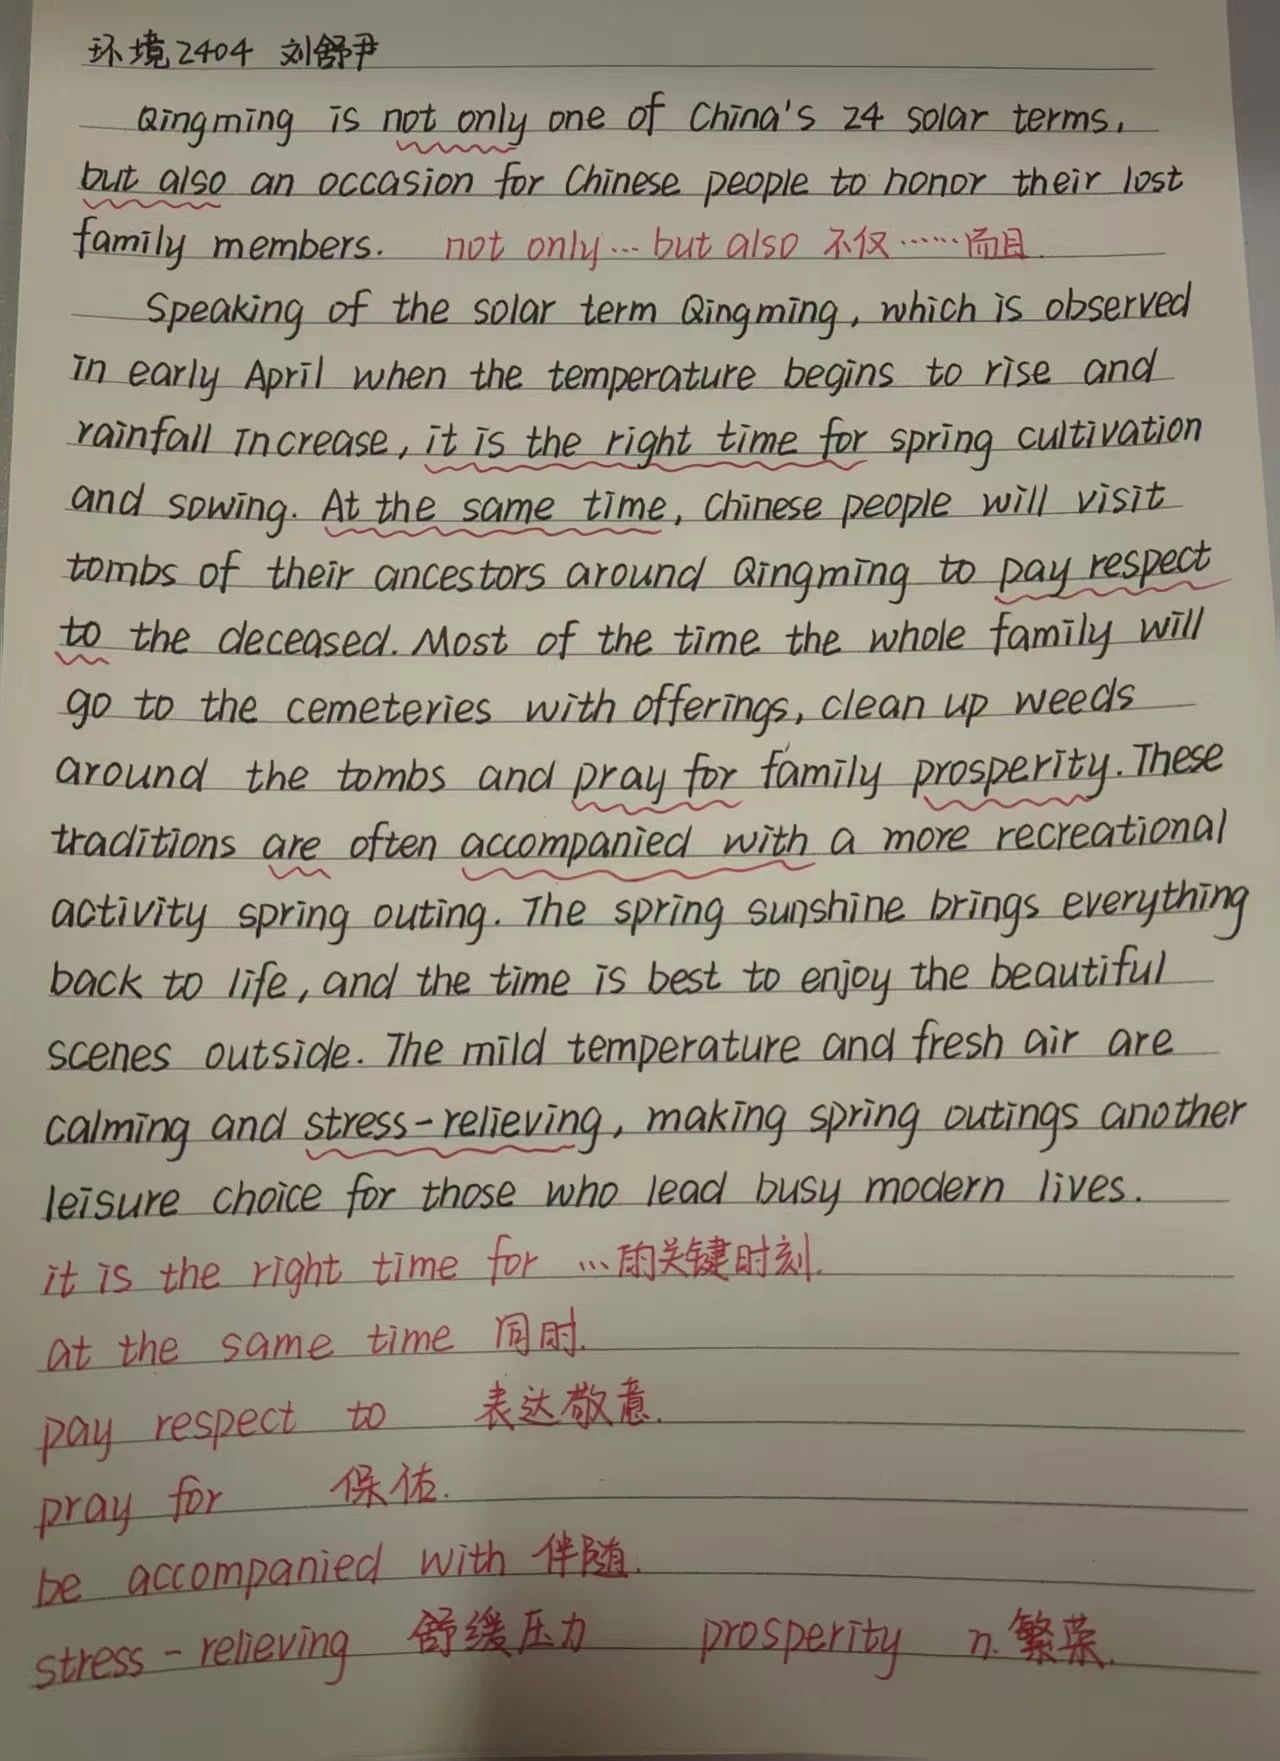 环境2404 刘舒尹
Qingming is not only one of China's 24 solar terms,
but also an occasion for Chinese people to honor their lost
family members. not only… but also 不仅……而且.
Speaking of the solar term Qingming, which is observed
in early April when the temperature begins to rise and
rainfall increase, it is the right time for spring cultivation
and sowing. At the same time, Chinese people will visit
tombs of their ancestors around Qingming to pay respect
to the deceased. Most of the time the whole family will
go to the cemeteries with offerings, clean up weeds
around the tombs and pray for family prosperity. These
traditions are often accompanied with a more recreational
activity spring outing. The spring sunshine brings everything
back to life, and the time is best to enjoy the beautiful
scenes outside. The mild temperature and fresh air are
calming and stress-relieving, making spring outings another
leisure choice for those who lead busy modern lives.
it is the right time for …的关键时刻.
at the same time 同时.
pay respect to 表达敬意.
pray for 保佑.
be accompanied with 伴随.
stress-relieving 舒缓压力 prosperity n.繁荣.